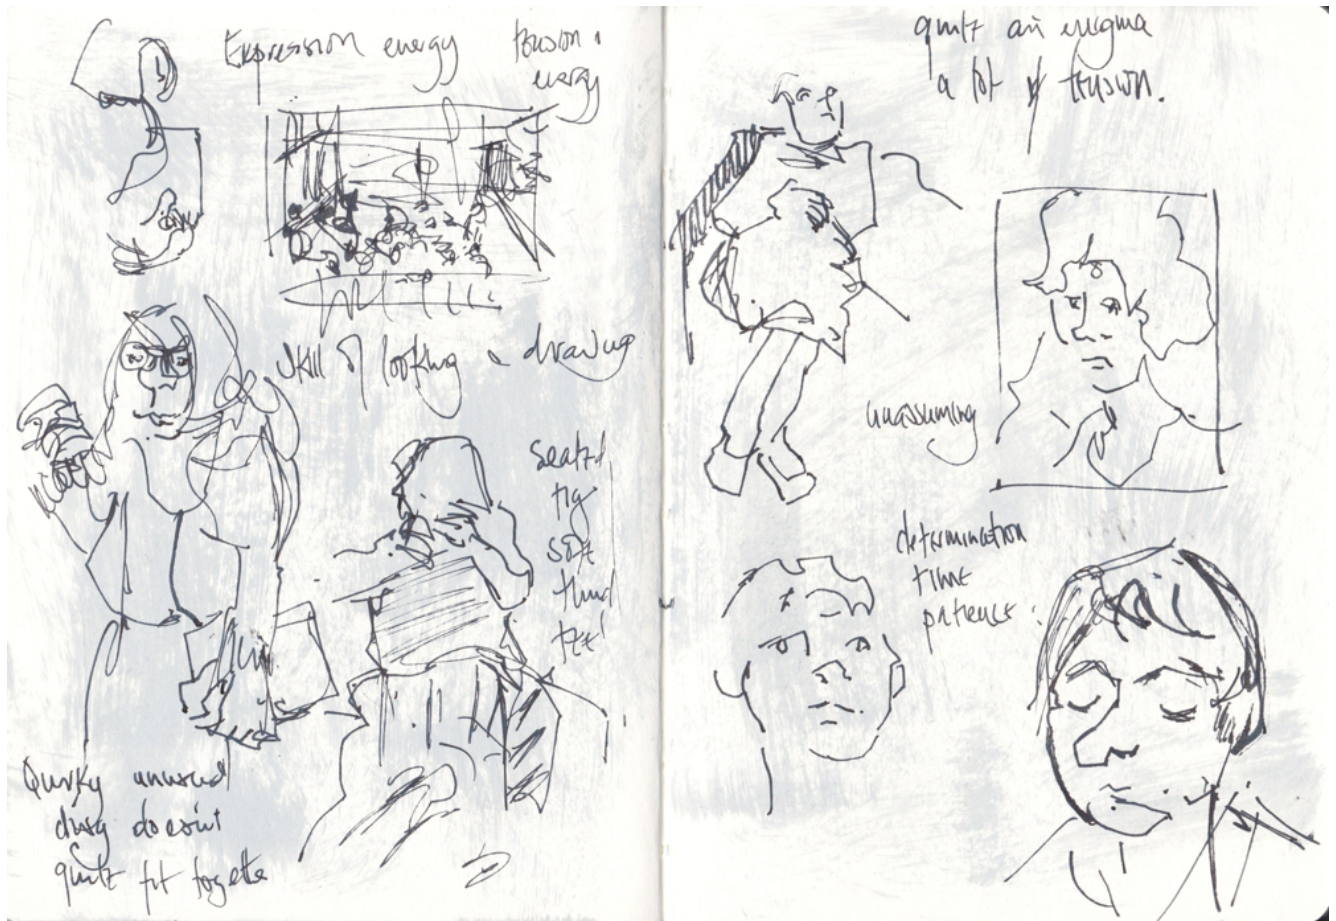 Expression energy tension
energy
skill of looking & drawing
Seated
soft
Quirky unusual
doesn't
quite fit together
quite an enigma
a lot of tension.
unassuming
determination
time
patience